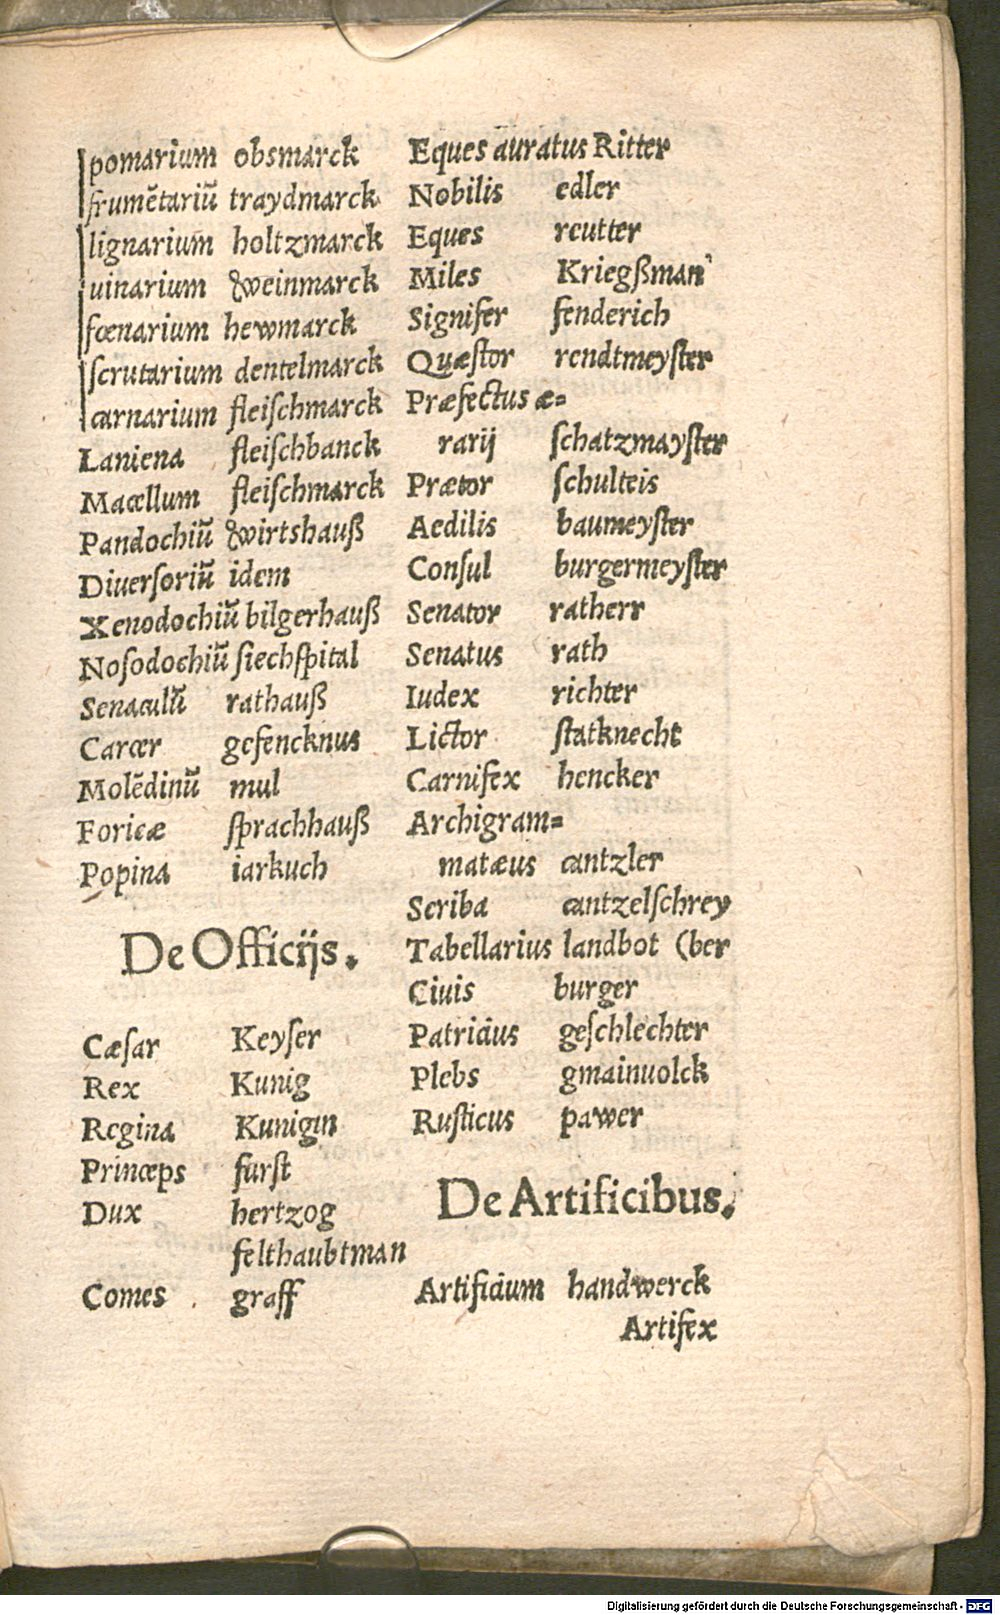 pomarium obsmarck
frumẽtariũ traydmarck
lignarium holtzmarck
uinarium weinmarck
fœnarium hewmarck
ſcrutarium dentelmarck
carnarium fleiſchmarck
Laniena fleiſchbanck
Macellum fleiſchmarck
Pandochiũ wirtshauß
Diuerſoriũ idem
Xenodochiũ bilgerhauß
Noſodochiũ ſiechſpital
Senaculũ rathauß
Carcer gefencknus
Molẽdinũ mul
Foricæ ſprachhauß
Popina iarkuch
De Officijs.
Cæſar Keyſer
Rex Kunig
Regina Kunigin
Princeps furſt
Dux hertzog
felthaubtman
Comes graff
Eques auratus Ritter
Nobilis edler
Eques reutter
Miles Kriegßman
Signifer fenderich
Quæſtor rendtmeyſter
Præfectus æ=
rarij ſchatzmayſter
Prætor ſchulteis
Aedilis baumeyſter
Conſul burgermeyſter
Senator ratherr
Senatus rath
Iudex richter
Lictor ſtatknecht
Carnifex hencker
Archigram=
matæus cantzler
Scriba cantzelſchrey
Tabellarius landbot (ber
Ciuis burger
Patricius geſchlechter
Plebs gmainuolck
Ruſticus pawer
De Artificibus.
Artificium handwerck
Artifex
Digitalisierung gefördert durch die Deutsche Forschungsgemeinschaft - DFG